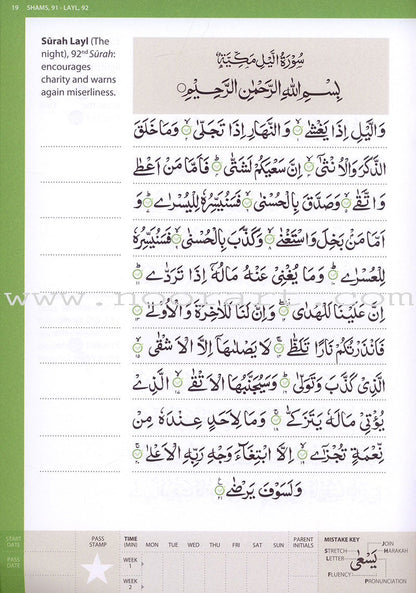 19 SHAMS, 91 - LAYL, 92
Sūrah Layl (The
night), 92nd Sūrah:
encourages
charity and warns
again miserliness.
سُوْرَةُ الَّيْلِ مَكِّيَّةٌ
بِسْمِ اللّٰهِ الرَّحْمٰنِ الرَّحِيْمِ
وَالَّيْلِ اِذَا يَغْشٰى ۙ وَالنَّهَارِ اِذَا تَجَلّٰى ۙ وَمَا خَلَقَ
الذَّكَرَ وَالْاُنْثٰٓى ۙ اِنَّ سَعْيَكُمْ لَشَتّٰى ؕ فَاَمَّا مَنْ اَعْطٰى
وَاتَّقٰى ۙ وَصَدَّقَ بِالْحُسْنٰى ۙ فَسَنُيَسِّرُهٗ لِلْيُسْرٰى ؕ وَ
اَمَّا مَنْۢ بَخِلَ وَاسْتَغْنٰى ۙ وَكَذَّبَ بِالْحُسْنٰى ۙ فَسَنُيَسِّرُهٗ
لِلْعُسْرٰى ؕ وَمَا يُغْنِيْ عَنْهُ مَالُهٗٓ اِذَا تَرَدّٰى ؕ
اِنَّ عَلَيْنَا لَلْهُدٰى ۖ وَاِنَّ لَنَا لَلْاٰخِرَةَ وَالْاُوْلٰى
فَاَنْذَرْتُكُمْ نَارًا تَلَظّٰى ۚ لَا يَصْلٰىهَآ اِلَّا الْاَشْقَى ۙ
الَّذِيْ كَذَّبَ وَتَوَلّٰى ؕ وَسَيُجَنَّبُهَا الْاَتْقَى ۙ الَّذِيْ
يُؤْتِيْ مَالَهٗ يَتَزَكّٰى ۚ وَمَا لِاَحَدٍ عِنْدَهٗ مِنْ
نِّعْمَةٍ تُجْزٰٓى ۙ اِلَّا ابْتِغَآءَ وَجْهِ رَبِّهِ الْاَعْلٰى ۚ
وَلَسَوْفَ يَرْضٰى
START DATE
PASS DATE
PASS STAMP
TIME (MIN) MON TUE WED THU FRI SAT SUN
WEEK 1
WEEK 2
PARENT INITIALS
MISTAKE KEY
STRETCH
LETTER
FLUENCY
يَسْعٰى
JOIN
HARAKAH
PRONUNCIATION